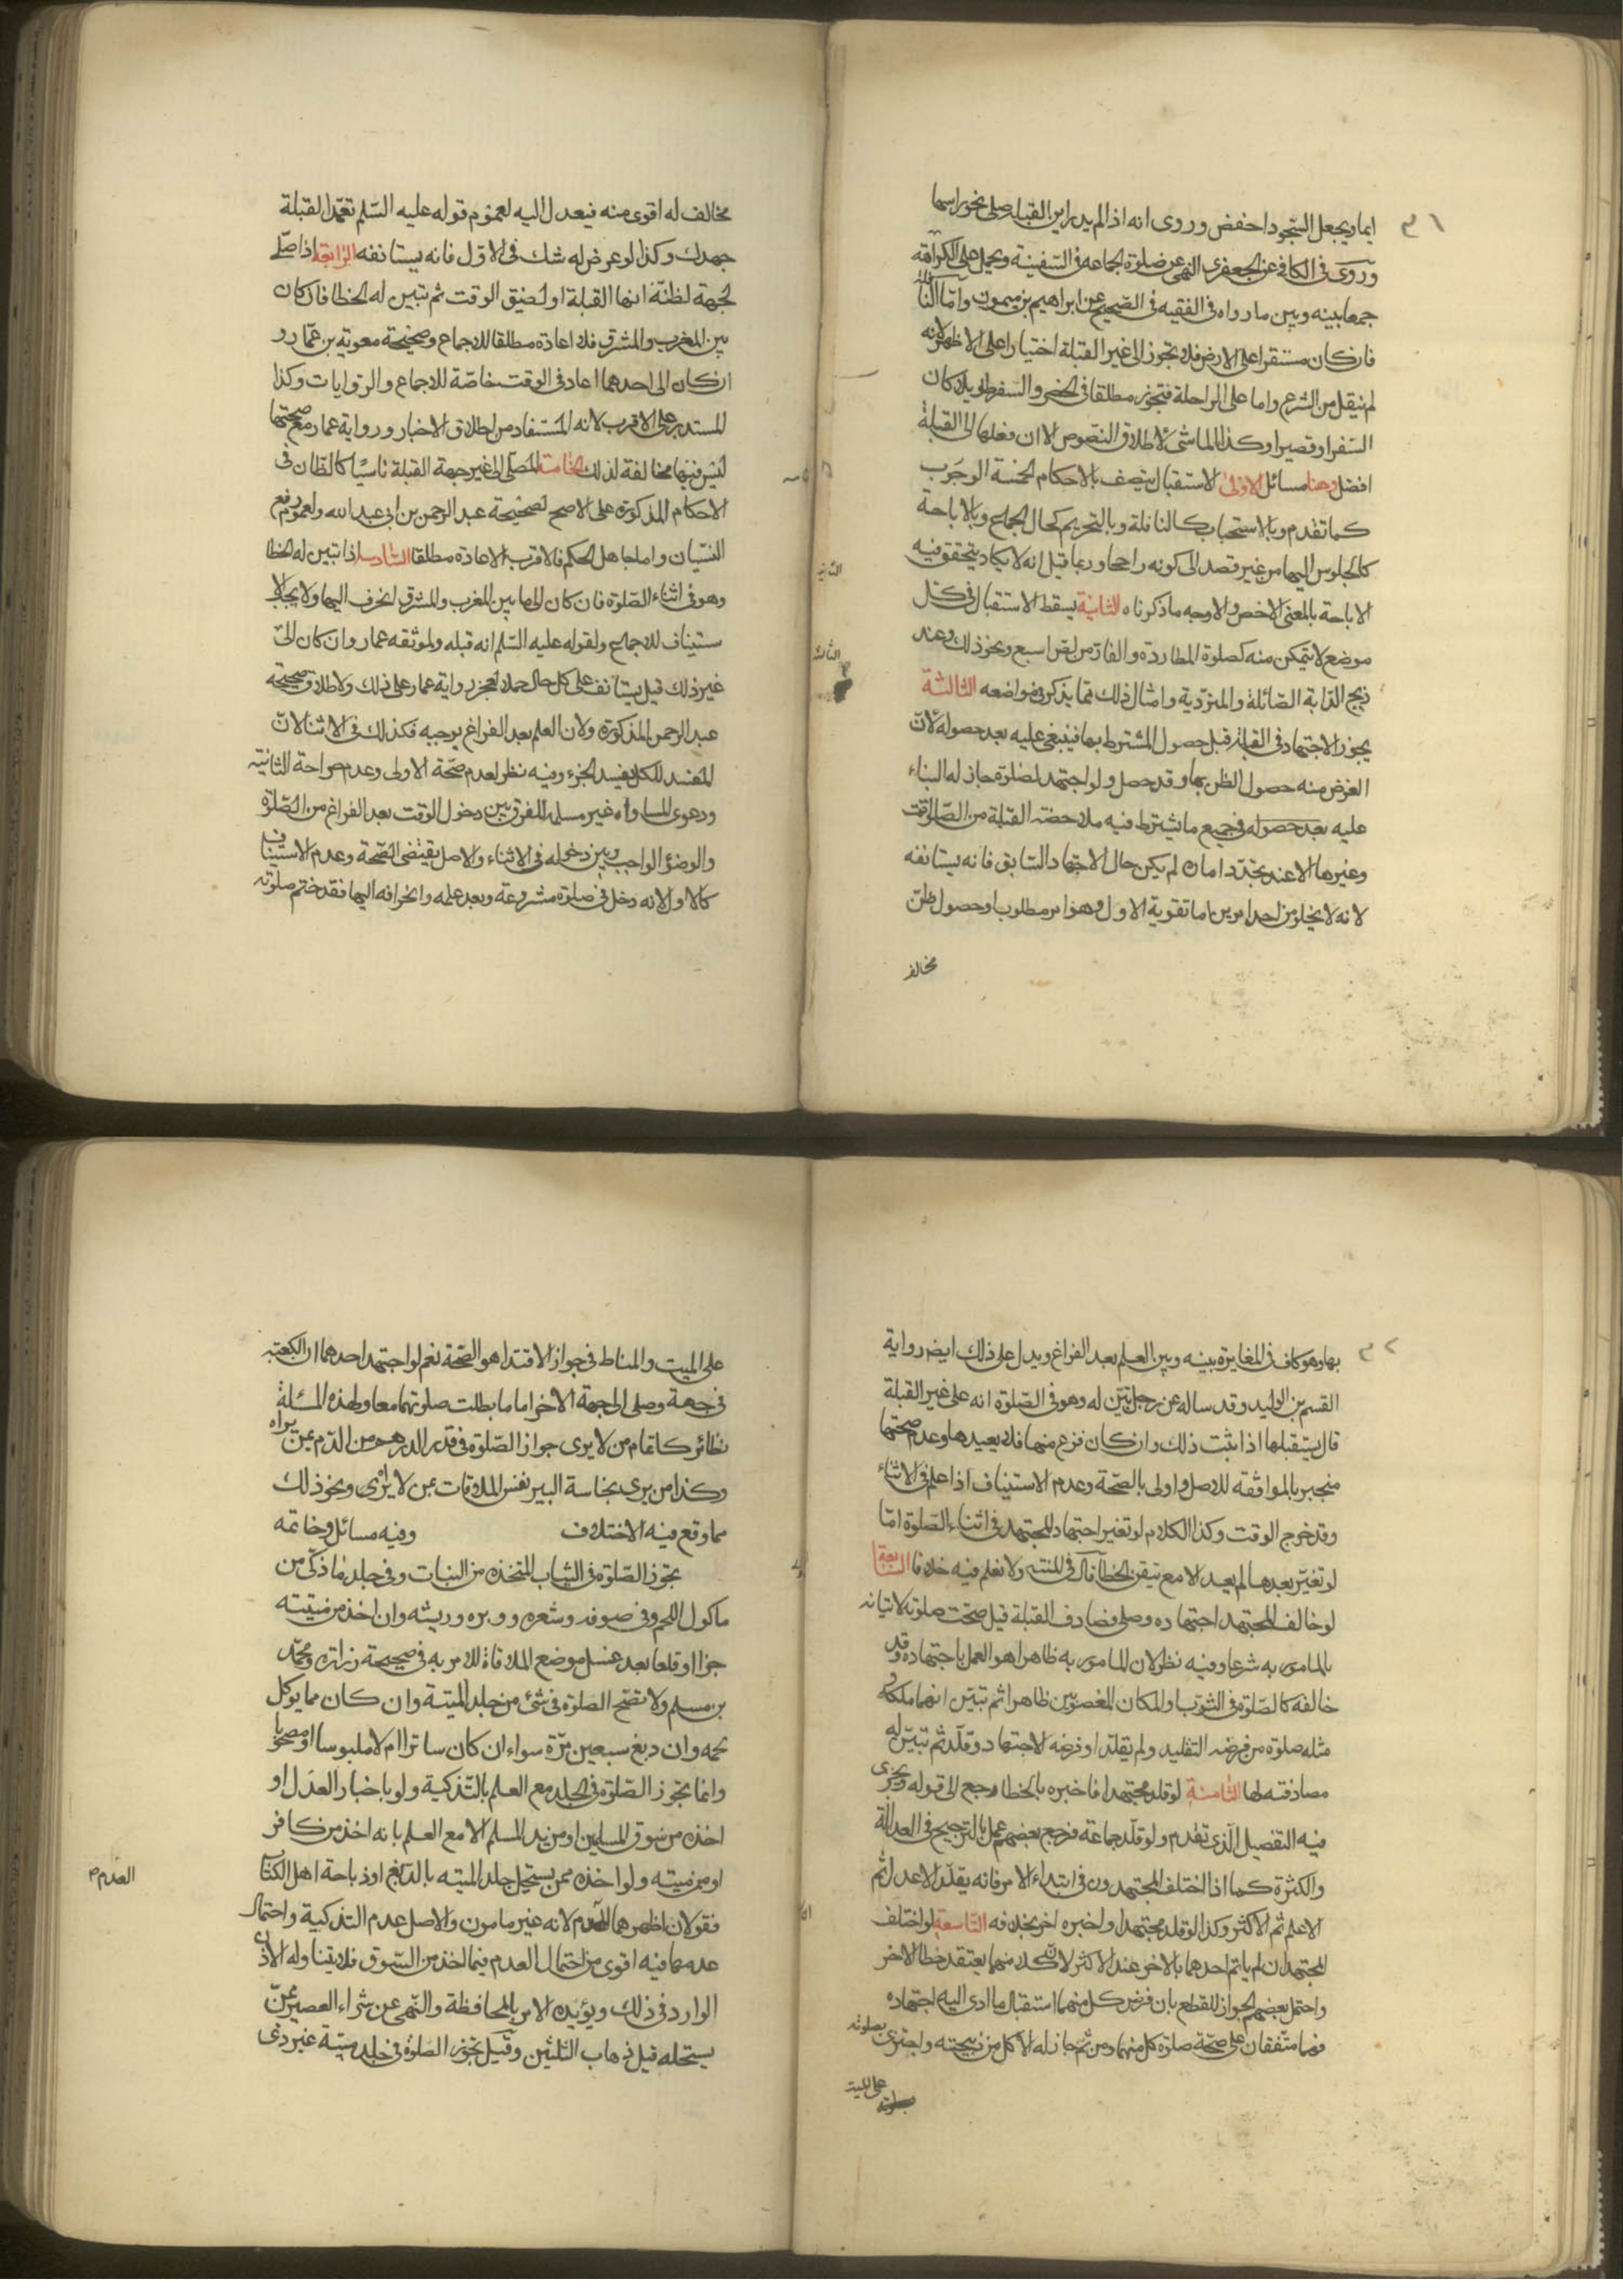 ٣١
ايما ويجعل السجود اخفض وروى انه اذا لم يدر اين القبله صلى نحو راسها
وروى في الكافي عن الجعفرى النهى عن صلوة الجماعه في السفينة ويحمل على الكراهة
جمعا بينه وبين ما رواه في الفقيه في الصحيح عن ابراهيم بن ميمون واما النافلة
فان كان مستقرا على الارض فلا تجوز الى غير القبلة اختيارا على الاظهر لانه
لم ينقل من الشرع واما على الراحلة فتجوز مطلقا في الحضر والسفر طويلا كان
السفر او قصيرا وكذا الماشى لاطلاق النصوص الا ان فعلها الى القبلة
افضل وهنا مسائل الاولى الاستقبال يتصف بالاحكام الخمسة الوجوب
كما تقدم وبالاستحباب كالنافلة وبالتحريم كحال الجماع وبالاباحة
كالجلوس اليها من غير قصد الى كونه راجحا وربما قيل انه لا يكاد يتحقق فيه
الاباحة بالمعنى الاخص والاوجه ما ذكرناه الثانية يسقط الاستقبال في كل
موضع لا يتمكن منه كصلوة المطاردة والفار من لص او سبع ونحو ذلك وعند
ذبح الدابة الصائلة والمتردية وامثال ذلك مما يذكر في مواضعه الثالثة
يجوز الاجتهاد في القبلة قبل حصول المشترط بها فينبغى عليه بعد حصوله لان
الغرض منه حصول الظن بها وقد حصل ولو اجتهد لصلوة جاز له البناء
عليه بعد حصوله في جميع ما يشترط فيه ملاحضة القبلة من الصلوات
وغيرها الا عند تجدد امارة لم يكن حال الاجتهاد السابق فانه يستانفه
لانه لا يخلو من احد امرين اما تقوية الاول وهو امر مطلوب او حصول ظن
مخالف
الثانية
الثالثة
مخالف له اقوى منه فيعدل اليه لعموم قوله عليه السلم تعمد القبلة
جهدك وكذا لو عرض له شك في الاول فانه يستانفه الرابعة اذا صلى
لجهة لظنه انها القبلة او لضيق الوقت ثم تبين له الخطا فان كان
بين المغرب والمشرق فلا اعادة مطلقا للاجماع وصحيحة معوية بن عمار و
ان كان الى احدهما اعاد في الوقت خاصة للاجماع والروايات وكذا
المستدبر على الاقرب لانه المستفاد من اطلاق الاخبار ورواية عمار مع صحتها
ليس فيها مخالفة لذلك الخامسة المصلى الى غير جهة القبلة ناسيا كالظان في
الاحكام المذكورة على الاصح لصحيحة عبد الرحمن بن ابى عبد الله ولعموم رفع
النسيان واما جاهل الحكم فالاقرب الاعادة مطلقا السادسة اذا تبين له الخطا
وهو في اثناء الصلوة فان كان الى ما بين المغرب والمشرق انحرف اليها ولا يجب الا
ستيناف للاجماع ولقوله عليه السلم انه قبله ولموثقه عمار وان كان الى
غير ذلك قيل يستانف على كل حال حملا لعجز رواية عمار على ذلك ولاطلاق صحيحة
عبد الرحمن المذكورة ولان العلم بعد الفراغ يوجبه فكذلك في الاثناء لان
المفسد للكل يفسد الجزء وفيه نظر لعدم صحة الاولى وعدم صراحة الثانية
ودعوى المساواه غير مسلمه للفرق بين دخول الوقت بعد الفراغ من الصلوة
والوضوء الواجب وبين دخوله في الاثناء والاصل يقتضى الصحة وعدم الاستيناف
كالاول لانه دخل في صلوة مشروعة وبعد علمه وانحرافه اليها فقد ختم صلوته
٣٢
بها وهو كاف في المغايرة بينه وبين العلم بعد الفراغ ويدل على ذلك ايضا رواية
القسم بن الوليد وقد ساله عن رجل تبين له وهو في الصلوة انه على غير القبلة
قال يستقبلها اذا ثبت ذلك وان كان فرغ منها فلا يعيدها وعدم صحتها
منجبر بالموافقة للاصل واولى بالصحة وعدم الاستيناف اذا علم في الاثناء
وقد خرج الوقت وكذا الكلام لو تغير اجتهاد المجتهد في اثناء الصلوة اما
لو تغير بعدها لم يعد الا مع تيقن الخطا قال في المنتهى ولا نعلم فيه خلافا السابعة
لو خالف المجتهد اجتهاده وصلى فصادف القبلة قيل صحت صلوته لاتيانه
بالمامور به شرعا وفيه نظر لان المامور به ظاهرا هو العمل باجتهاده وقد
خالفه كالصلوة في الثوب والمكان المغصوبين ظاهرا ثم تبين انهما ملكه و
مثله صلوة من فرضه التقليد ولم يقلد او فرضه الاجتهاد وقلد ثم تبين له
مصادفته لها الثامنة لو قلد مجتهدا فاخبره بالخطا رجع الى قوله ويجرى
فيه التفصيل الذى تقدم ولو قلد جماعة فرجع بعضهم عمل بالترجيح في العدالة
والكثرة كما اذا اختلف المجتهدون في ابتداء الامر فانه يقلد الاعدل ثم
الاعلم ثم الاكثر وكذا لو قلد مجتهدا واخبره اخر بخلافه التاسعة لو اختلف
المجتهدان لم ياتم احدهما بالاخر عند الاكثر لان كلا منهما يعتقد خطا الاخر
واحتمل بعضهم الجواز للقطع بان فرض كل منهما استقبال ما ادى اليه اجتهاده
فهما متفقان على صحة صلوة كل منهما ومن ثم جاز له الاكل من ذبيحته واجتزئ بصلوته
على الميت
على الميت والمناط في جواز الاقتداء هو الصحة نعم لو اجتهد احدهما ان الكعبة
في جهة وصلى الى جهة الاخر اماما بطلت صلوتهما معا ولهذه المسئلة
نظائر كائتمام من لا يرى جواز الصلوة في قدر الدرهم من الدم بمن يراه
وكذا من يرى نجاسة البير بنفس الملاقات بمن لا يرى ونحو ذلك
مما وقع فيه الاختلاف وفيه مسائل وخاتمه
تجوز الصلوة في الثياب المتخذه من النبات وفي جلد ما ذكى من
ماكول اللحم وفي صوفه وشعره ووبره وريشه وان اخذ من ميتته
جزا او قلعا بعد غسل موضع الملاقاة للامر به في صحيحة زرارة ومحمد
بن مسلم ولا تصح الصلوة في شئ من جلد الميتة وان كان مما يوكل
لحمه وان دبغ سبعين مرة سواء ان كان ساترا ام لا ملبوسا او مصحوبا
وانما تجوز الصلوة في الجلد مع العلم بالتذكية ولو باخبار العدل او
اخذه من سوق المسلمين او من يد المسلم الا مع العلم بانه اخذ من كافر
او من ميته ولو اخذه ممن يستحل جلد الميته بالدبغ او ذباحة اهل الكتاب
فقولان اظهرهما العدم لانه غير مامون والاصل عدم التذكية واحتمال
عدمها فيه اقوى من احتمال العدم فيما اخذ من السوق فلا يتناوله الاذن
الوارد في ذلك ويؤيده الامر بالمحافظة والنهى عن شراء العصير عمن
يستحله قبل ذهاب الثلثين وقيل تجوز الصلوة في جلد ميتة غير ذى
العدم